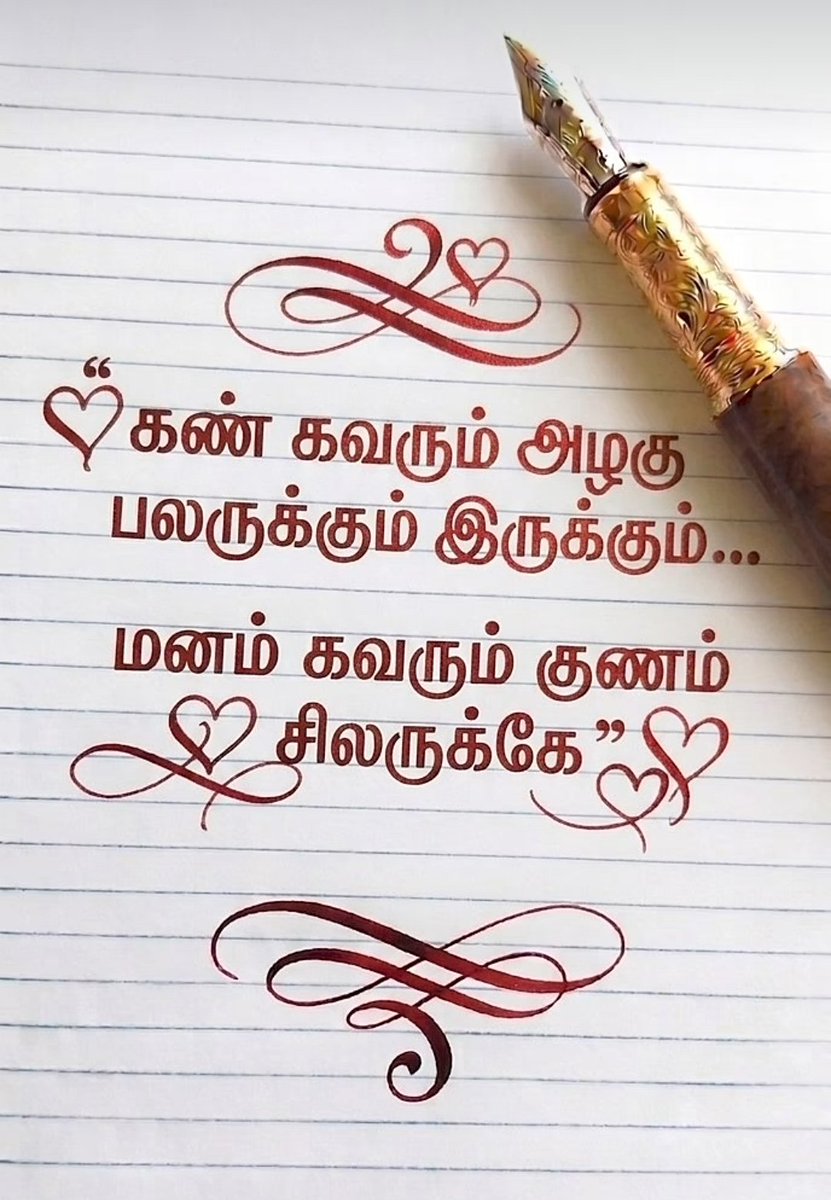 “கண் கவரும் அழகு
பலருக்கும் இருக்கும்...
மனம் கவரும் குணம்
சிலருக்கே”